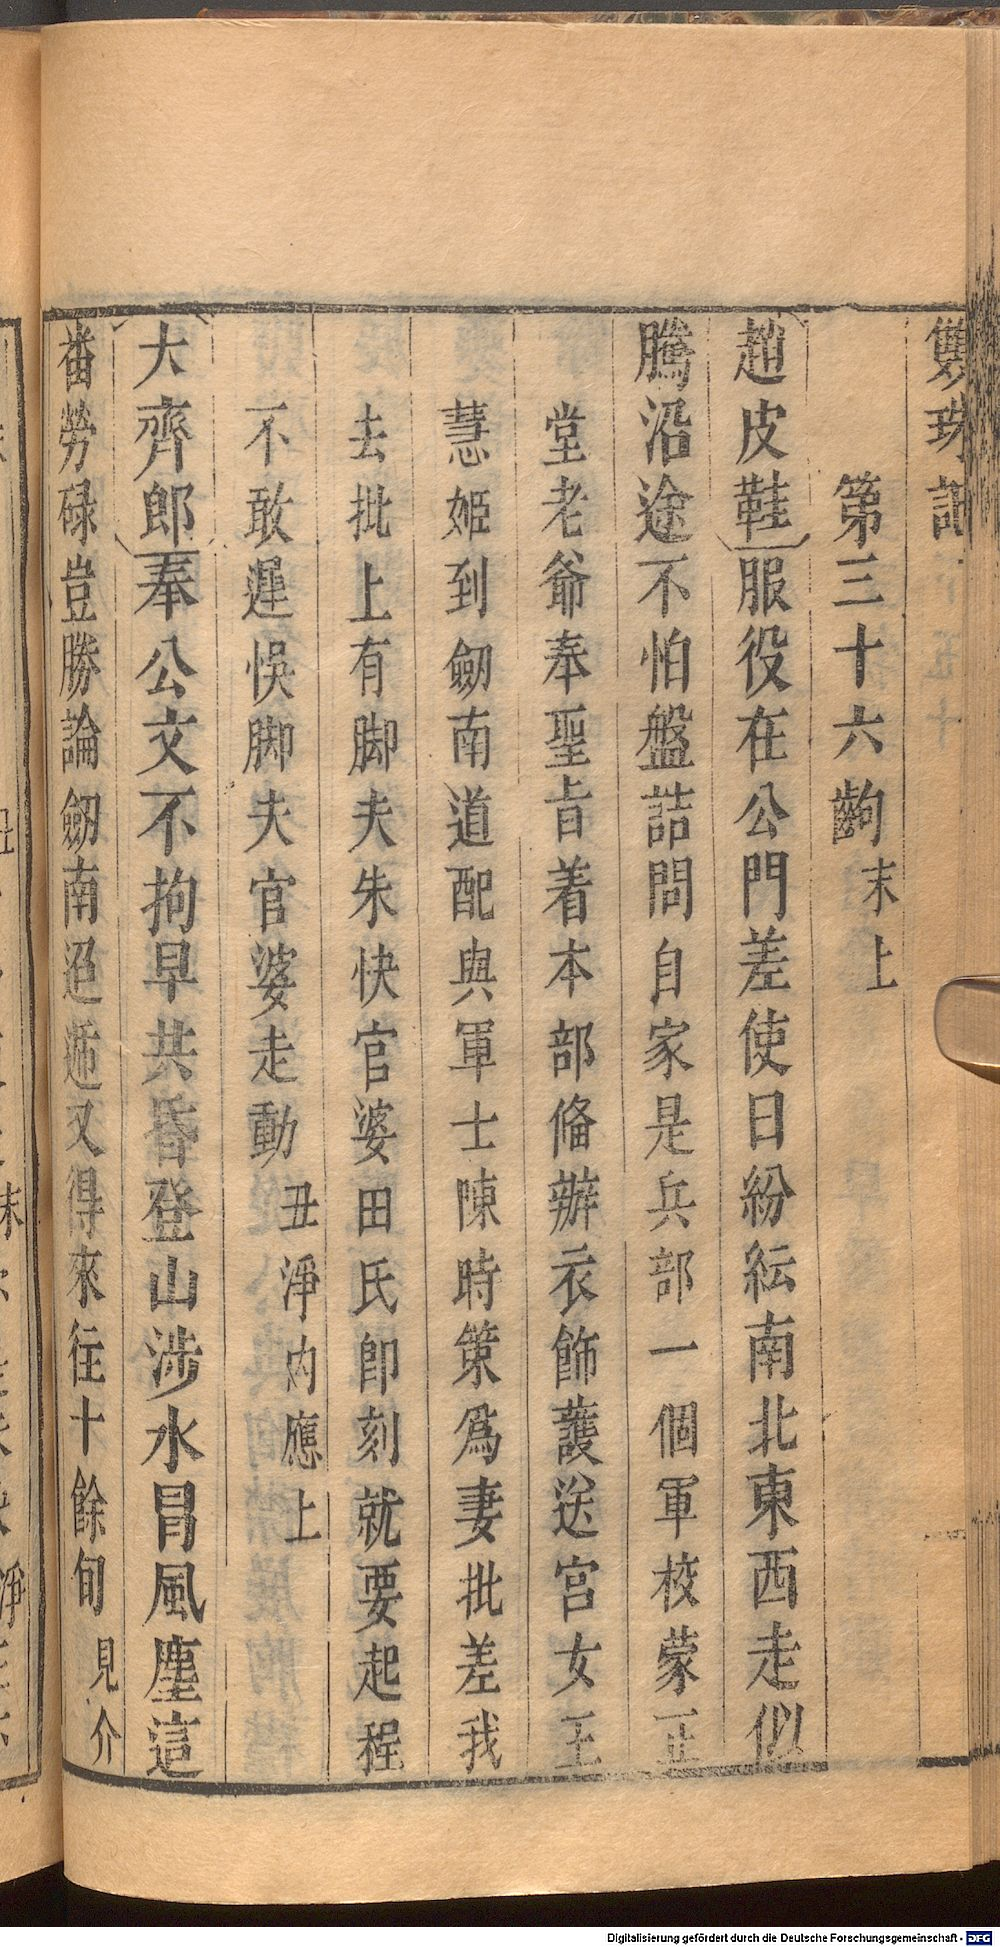 雙珠記
第三十六齣 末上
趙皮鞋服役在公門差使日紛紜南北東西走似
騰沿途不怕盤詰問自家是兵部一個軍校蒙正
堂老爺奉聖旨着本部俻辦衣飾護送宮女王
慧姬到劒南道配與軍士陳時策爲妻批差我
去批上有脚夫朱快官婆田氏卽刻就要起程
不敢遲悞脚夫官婆走動 丑淨內應上
大齊郎奉公文不拘早共昏登山涉水冒風塵這
畨勞碌豈勝論劒南迢遞又得來往十餘旬 見介
Digitalisierung gefördert durch die Deutsche Forschungsgemeinschaft - DFG